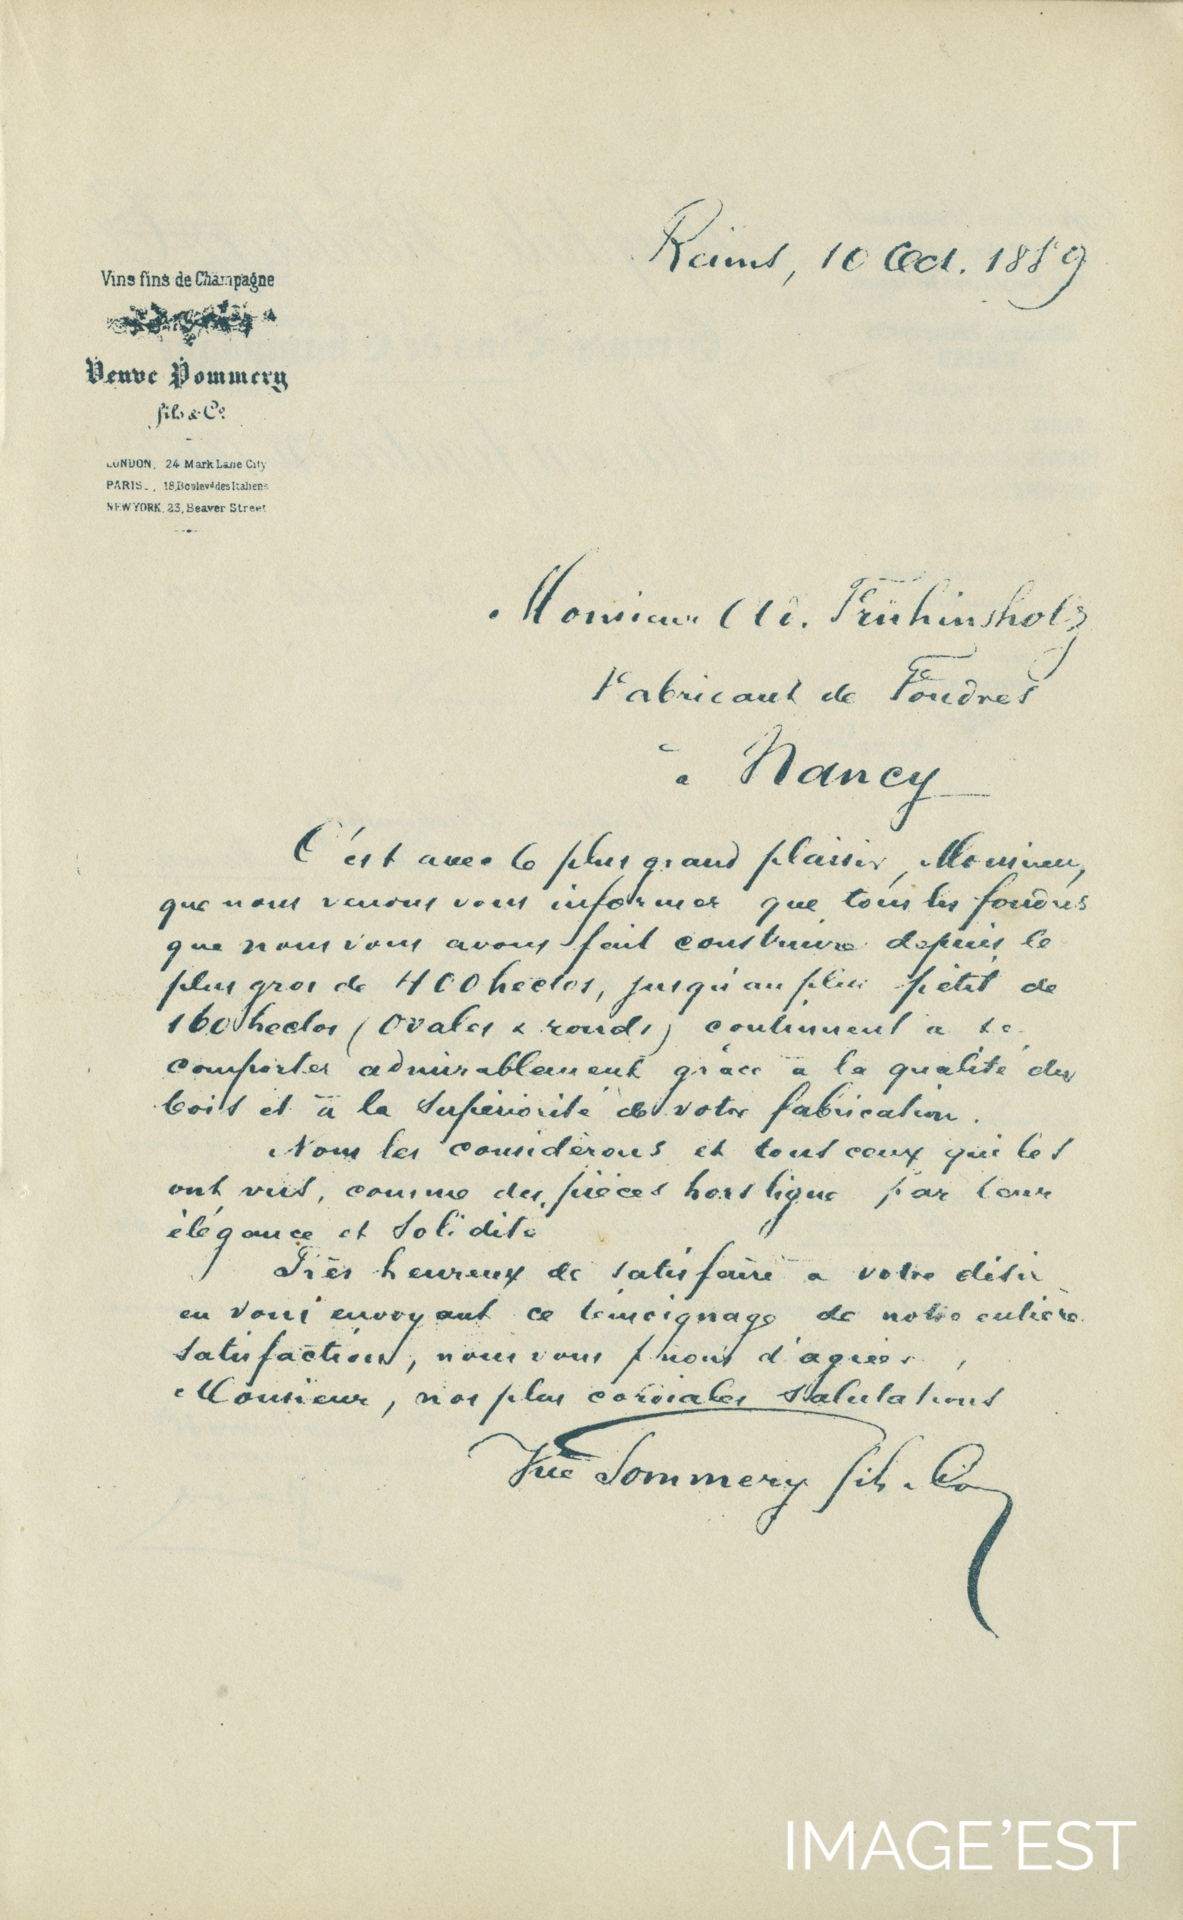 Reims, 10 Oct. 1889
Vins fins de Champagne
Veuve Pommery
fils & Cº
LONDON, 24 Mark Lane City
PARIS., 18, Boulevd des Italiens
NEW YORK, 23, Beaver Street
Monsieur Ad. Frühinsholz
Fabricant de Foudres
à Nancy
C'est avec le plus grand plaisir, Monsieur,
que nous venons vous informer que tous les foudres
que nous vous avons fait construire depuis le
plus gros de 400 hectos, jusqu'au plus petit de
160 hectos (Ovales & ronds) continuent à se
comporter admirablement grâce à la qualité des
bois et à la supériorité de votre fabrication.
Nous les considérons et tous ceux qui les
ont vus, comme des pièces hors ligne par leur
élégance et solidité
Très heureux de satisfaire à votre désir
en vous envoyant ce témoignage de notre entière
satisfaction, nous vous prions d'agréer,
Monsieur, nos plus cordiales salutations
Vve Pommery fils & Co
IMAGE'EST